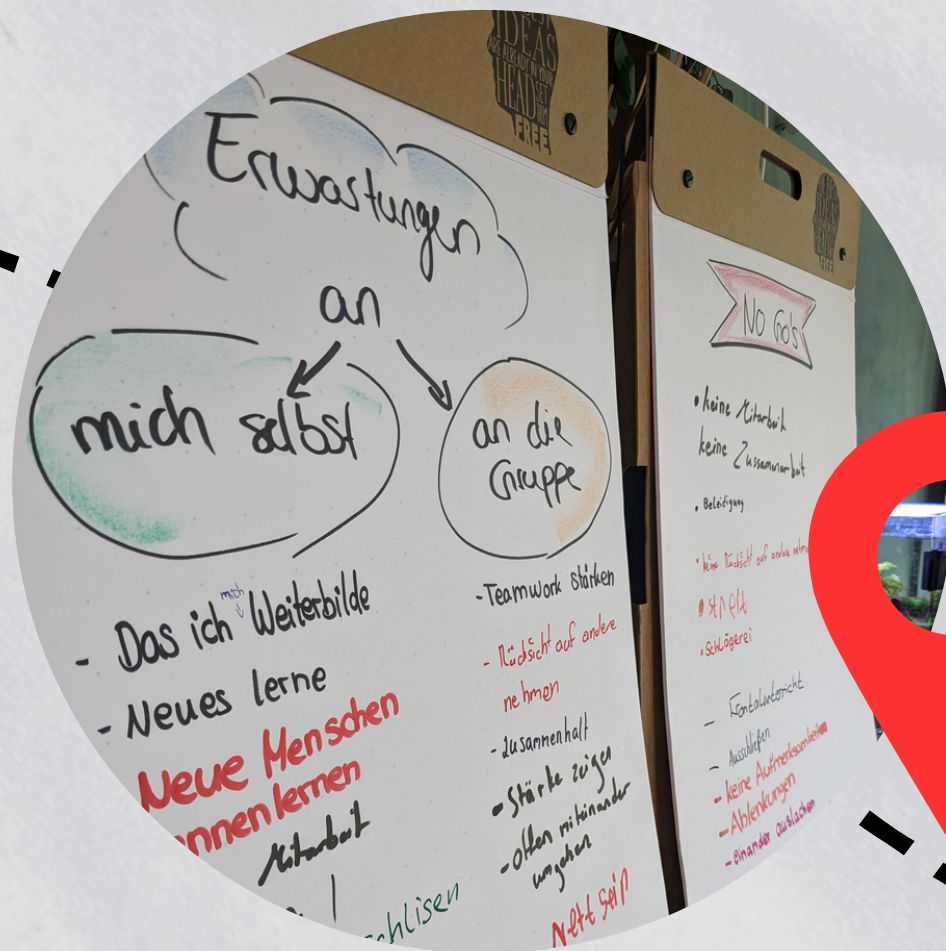 IDEAS
ARE ALREADY IN YOUR
HEAD
SET
FREE
Erwartungen
an
mich selbst
- Das ich mich Weiterbilde
- Neues lerne
Neue Menschen
nnenlernen
Mitarbeit
an die
Gruppe
- Teamwork stärken
- Rücksicht auf andere
nehmen
- zusammenhalt
- Stärke zeigen
- offen miteinander
umgehen
Nett sein
No Go's
• keine Mitarbeit
keine Zusammenarbeit
• Beleidigung
• keine Rücksicht auf andere
• Streit
• Schlägerei
- Frontalunterricht
- Ausschließen
- keine Aufmerksamkeit
- Ablenkungen
- einander auslachen